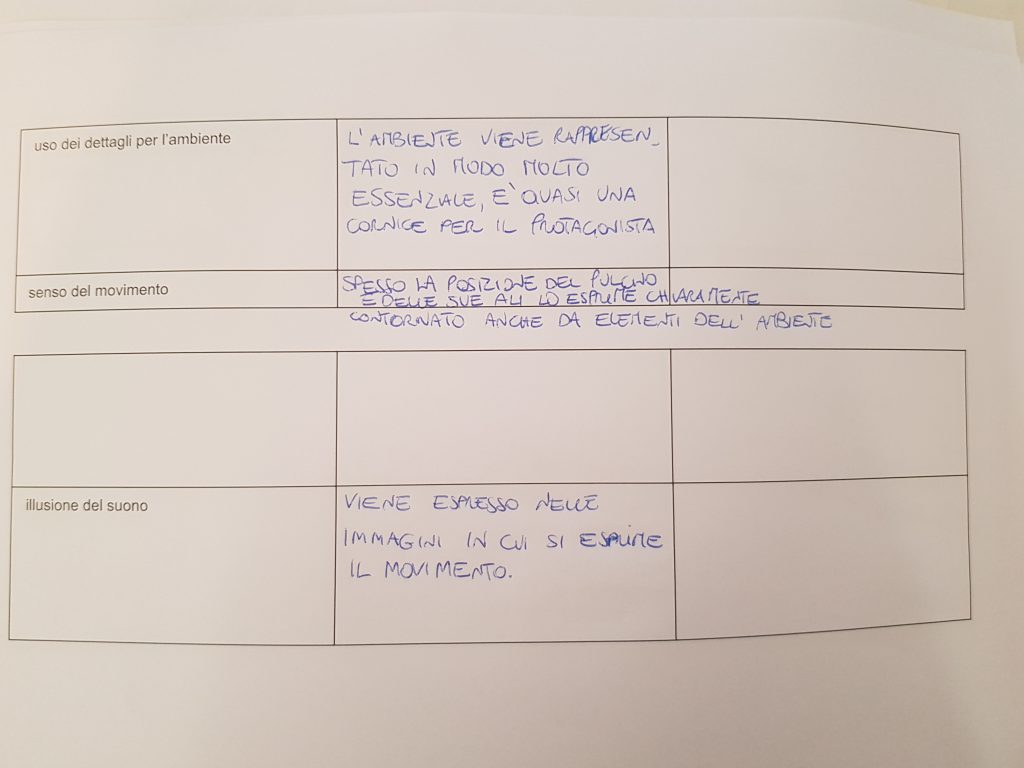 uso dei dettagli per l'ambiente
L'AMBIENTE VIENE RAPPRESEN_
TATO IN MODO MOLTO
ESSENZIALE, E' QUASI UNA
CORNICE PER IL PROTAGONISTA
senso del movimento
SPESSO LA POSIZIONE DEL PULCINO
E DELLE SUE ALI LO ESPRIME CHIARAMENTE
CONTORNATO ANCHE DA ELEMENTI DELL' AMBIENTE
illusione del suono
VIENE ESPRESSO NELLE
IMMAGINI IN CUI SI ESPRIME
IL MOVIMENTO.